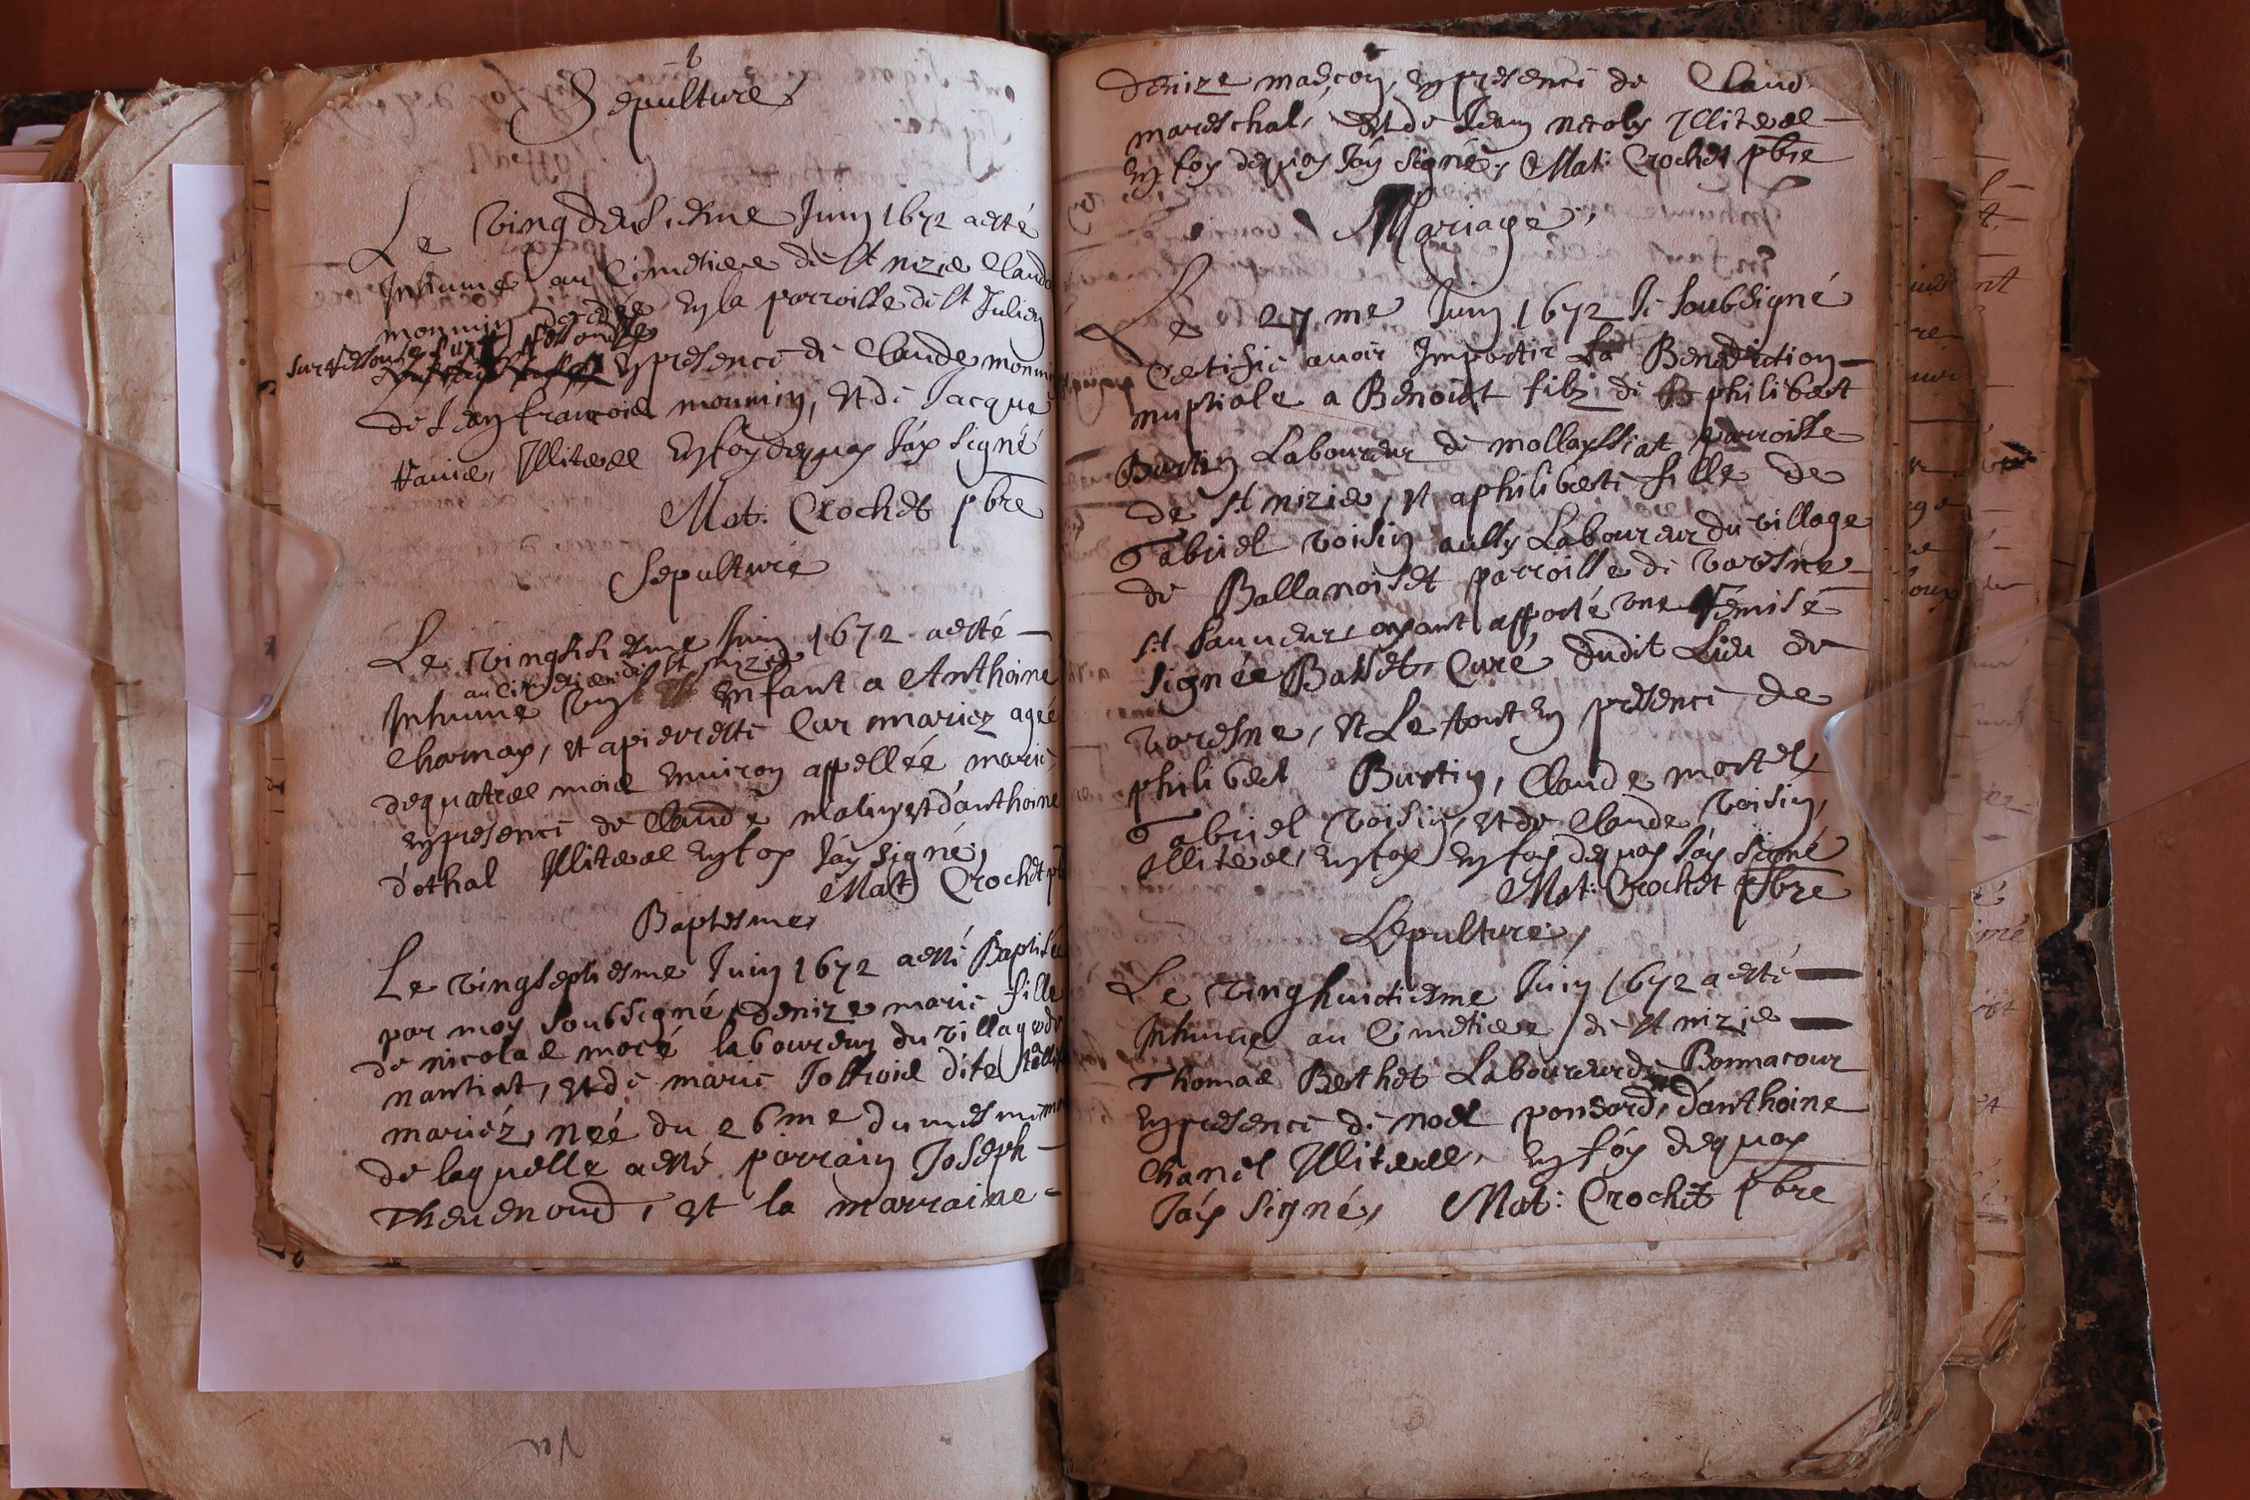 Sepulture
Le vingdeusiesme Juin 1672 a esté
Inhumé au Cimetiere de st nizie Claude
monmin decedée en la parroisse de st Julien
sur
en presence de Claude monmin
de Jean francois monmin, et de Jacque
Illiteres En foy dequoy Jáy signé
Mat: Crochet pbre
Sepulture
Le vingsisiesme Juin 1672 a esté
au Cimetiere de st nizie
Inhumé un enfant a Anthoine
Charnay, et a pierrette Cur mariez ageé
de quatre mois Environ appellée marie,
en presence de Claude malin et d'anthoine
dothal Illiteres en foy Jáy signé,
Mat: Crochet pbre
Baptesme
Le vingseptiesme Juin 1672 a esté Baptisée
par moy soubsigné denize marie fille
de nicolas moré laboureur du village de
nantiat, et de marie Joffroid dite
mariéz, neé du 26me du mesme mois
de laquelle a esté parrain Joseph
Thevenond, et la marraine
denize maeçon, en presence de Claud
mareschal, et de Jean nicolas Illiteres
en foy dequoy Jáy signé, Mat: Crochet pbre
Mariage,
Le 27me Juin 1672 Je soubsigné
Certifie avoir Impartir La Benediction
nuptiale a Benoist filz de philibert
Burtin Laboureur de mollayssiat parroisse
de st nizie, et a philiberte fille de
Gabriel voisin aussy Laboureur du village
de Ballanoiset parroisse de varesne
st sauveur, ayant apporté une Remise
signée Basset, Curé dudit Lieu de
varesne, et Le tout en presence de
philibert Burtin, Claude mortel
Gabriel voisin, et de Claude voisin,
Illiteres, en foy en foy dequoy Jáy signé
Mat: Crochet pbre
Sepulture,
Le vinghuictiesme Juin 1672 a esté
Inhumé au Cimetiere de st nizie
Thomas Berthet Laboureur de Bonnacour
en presence de noel ponsard, d'anthoine
Chanel Illiteres, en foy dequoy
Jáy signé, Mat: Crochet pbre